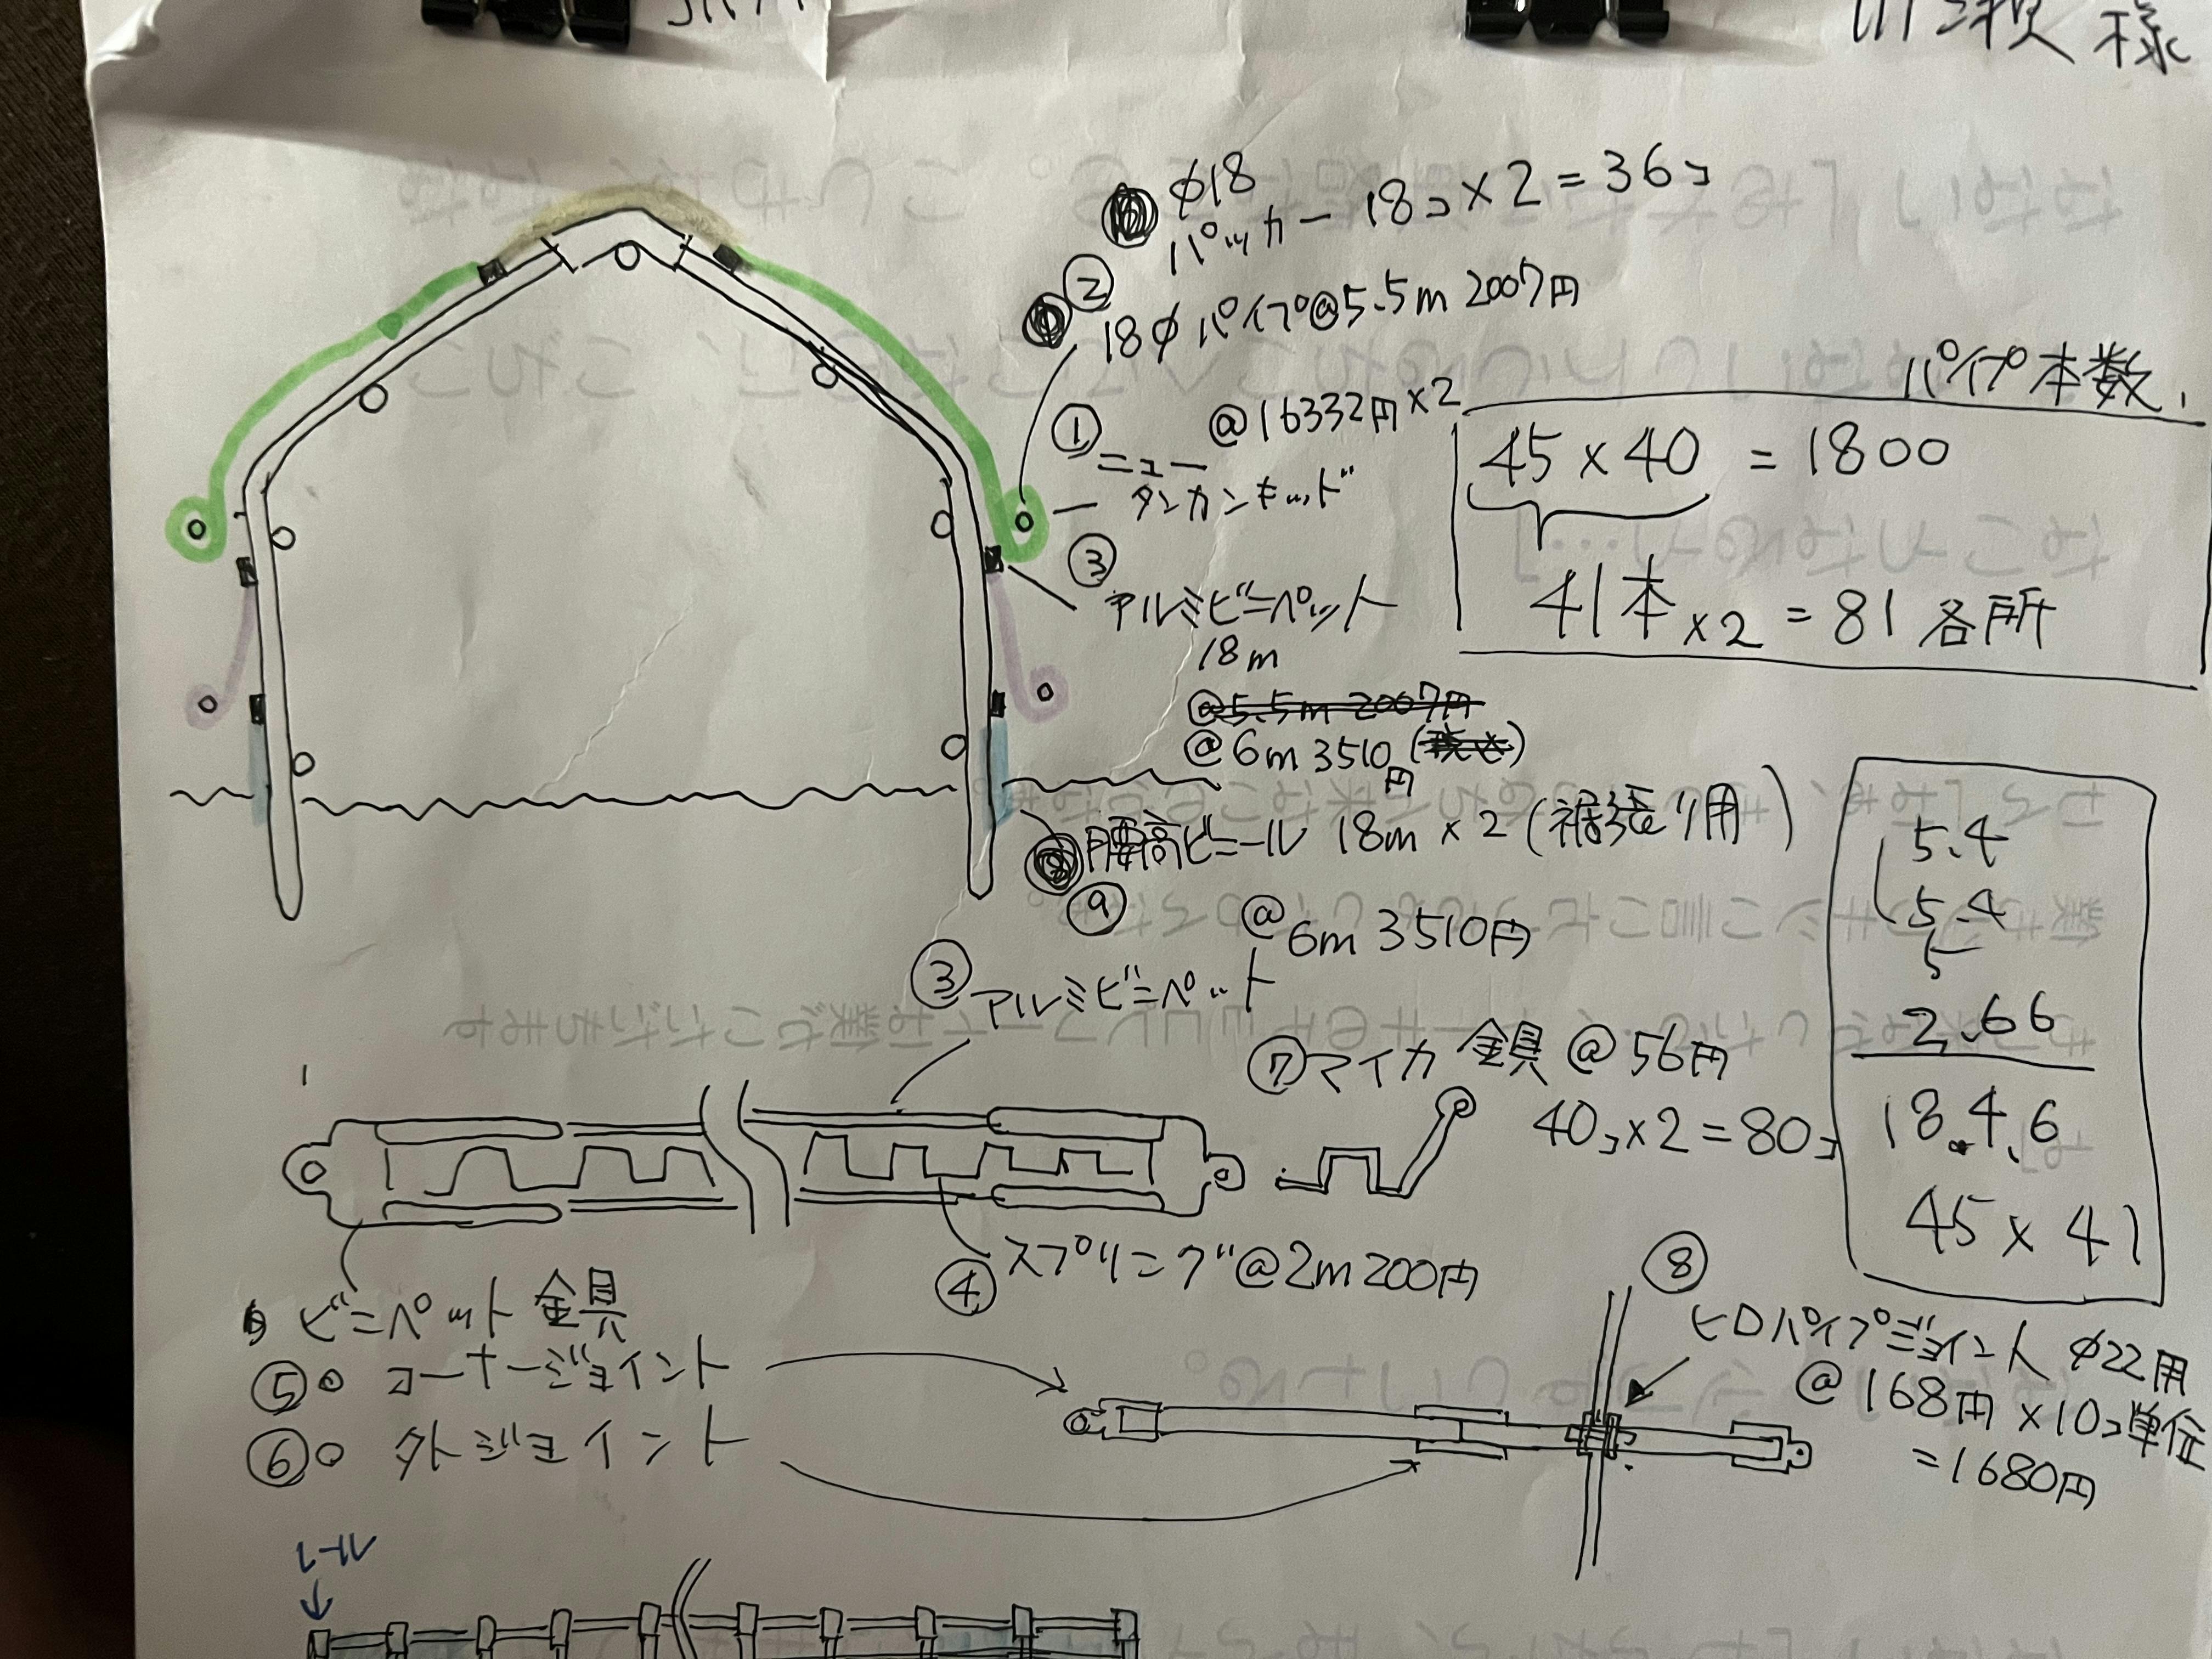 様
φ18
パッカー 18コ×2=36コ
②
18φパイプ@5.5m 2007円
① @16332円×2
ニュー
タンカンキット゛
③
アルミビニペット
18m
@5.5m 2007円
@6m 3510円(税込)
パイプ本数
45×40 = 1800
41本×2 = 81 各所
腰高ビニール 18m×2(裾張り用)
⑨
@6m 3510円
5.4
5.4
5
2.66
18.4.6
45×41
③アルミビニペット
⑦マイカ 金具 @56円
40コ×2=80コ
④スプリング@2m200円
ビニペット金具
⑤○ コーナージョイント
⑥○ 外ジョイント
⑧
ヒロパイプジョイント φ22用
@168円×10コ単位
=1680円
レール